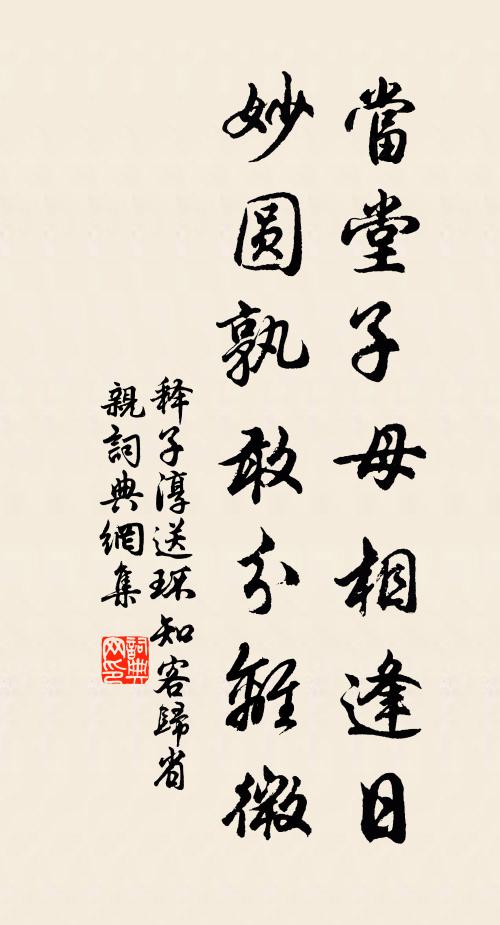 當堂子母相逢日
妙圆孰敢分離微
释子淳送琛知客歸省
親詞典網集
詞典網印